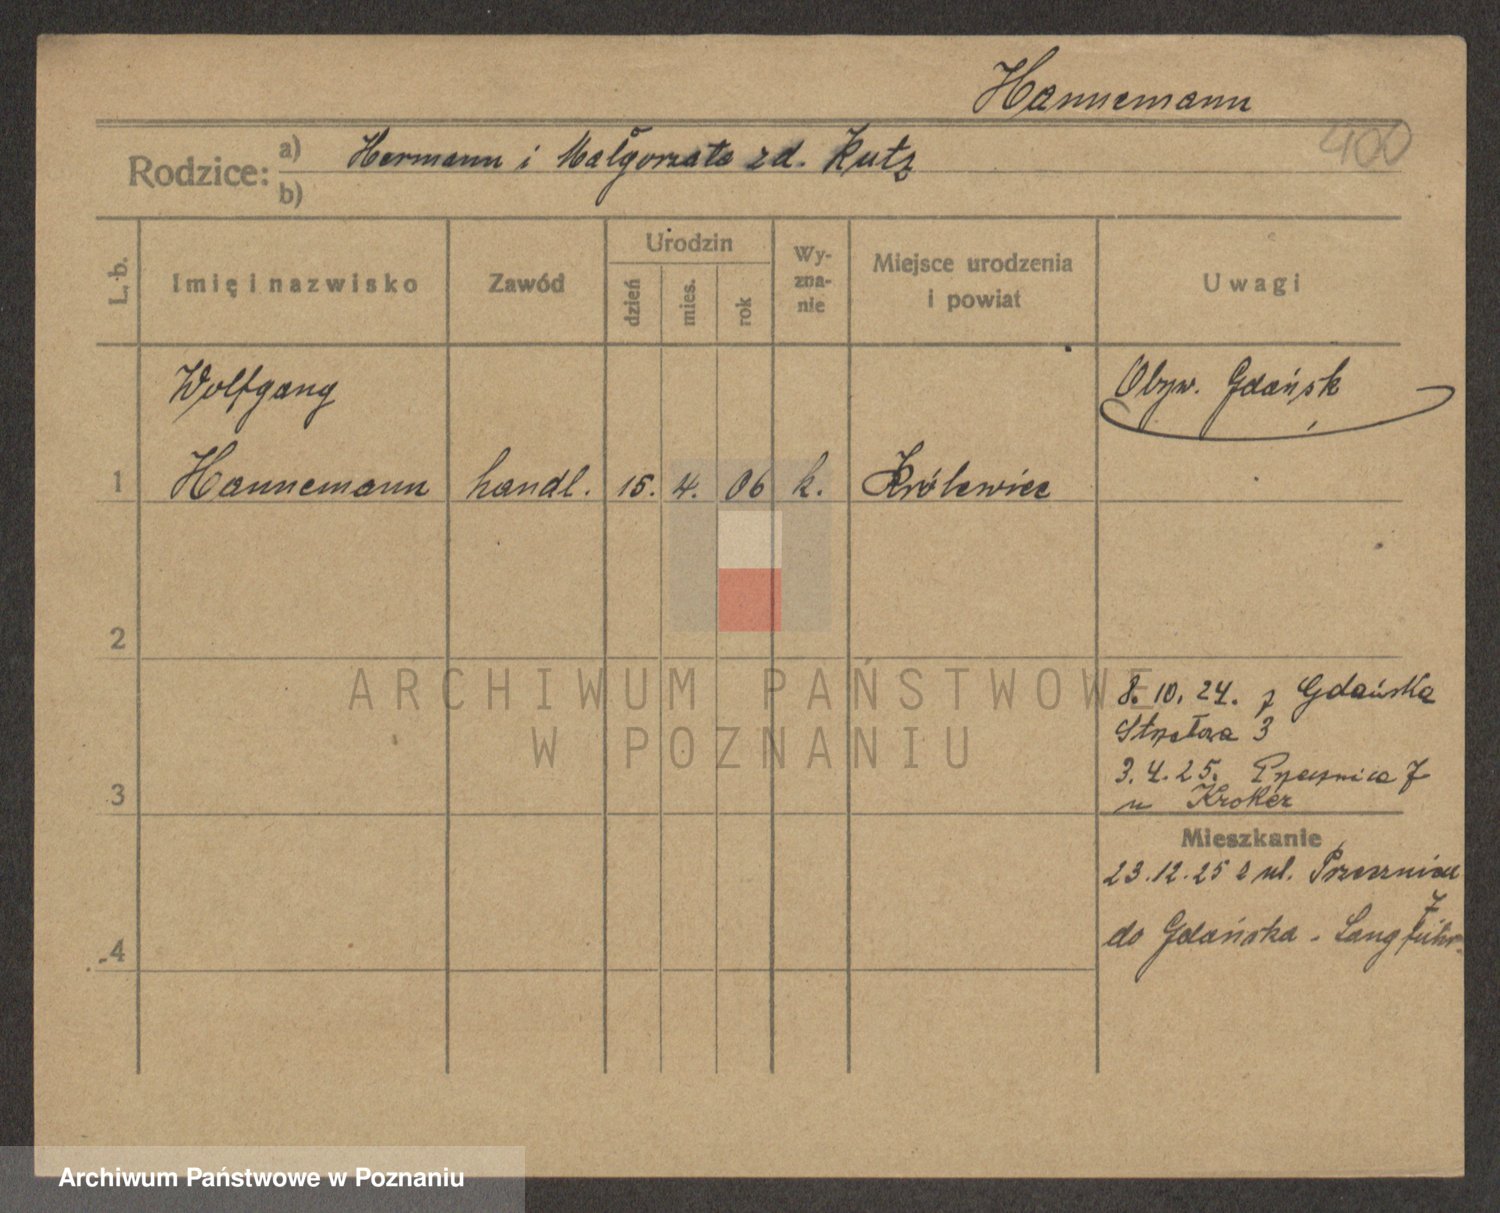 Hannemann
400
Rodzice: a) Hermann i Małgorzata zd. Kutz
b)
L. b.
Imię i nazwisko
Zawód
Urodzin
dzień
mies.
rok
Wy-
zna-
nie
Miejsce urodzenia
i powiat
Uwagi
Wolfgang
Obyw. Gdańsk
1 Hannemann handl. 15. 4. 06 k. Królewiec
2
ARCHIWUM PAŃSTWOWE
W POZNANIU
8. 10. 24. z Gdańska
3
3. 4. 25. Przecznica 7
3
u Kroker
Mieszkanie
23.12.25 z ul. Przecznica
7
4
do Gdańska - Langfuhr
Archiwum Państwowe w Poznaniu